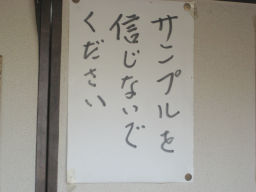 サンプルを
信じないで
ください